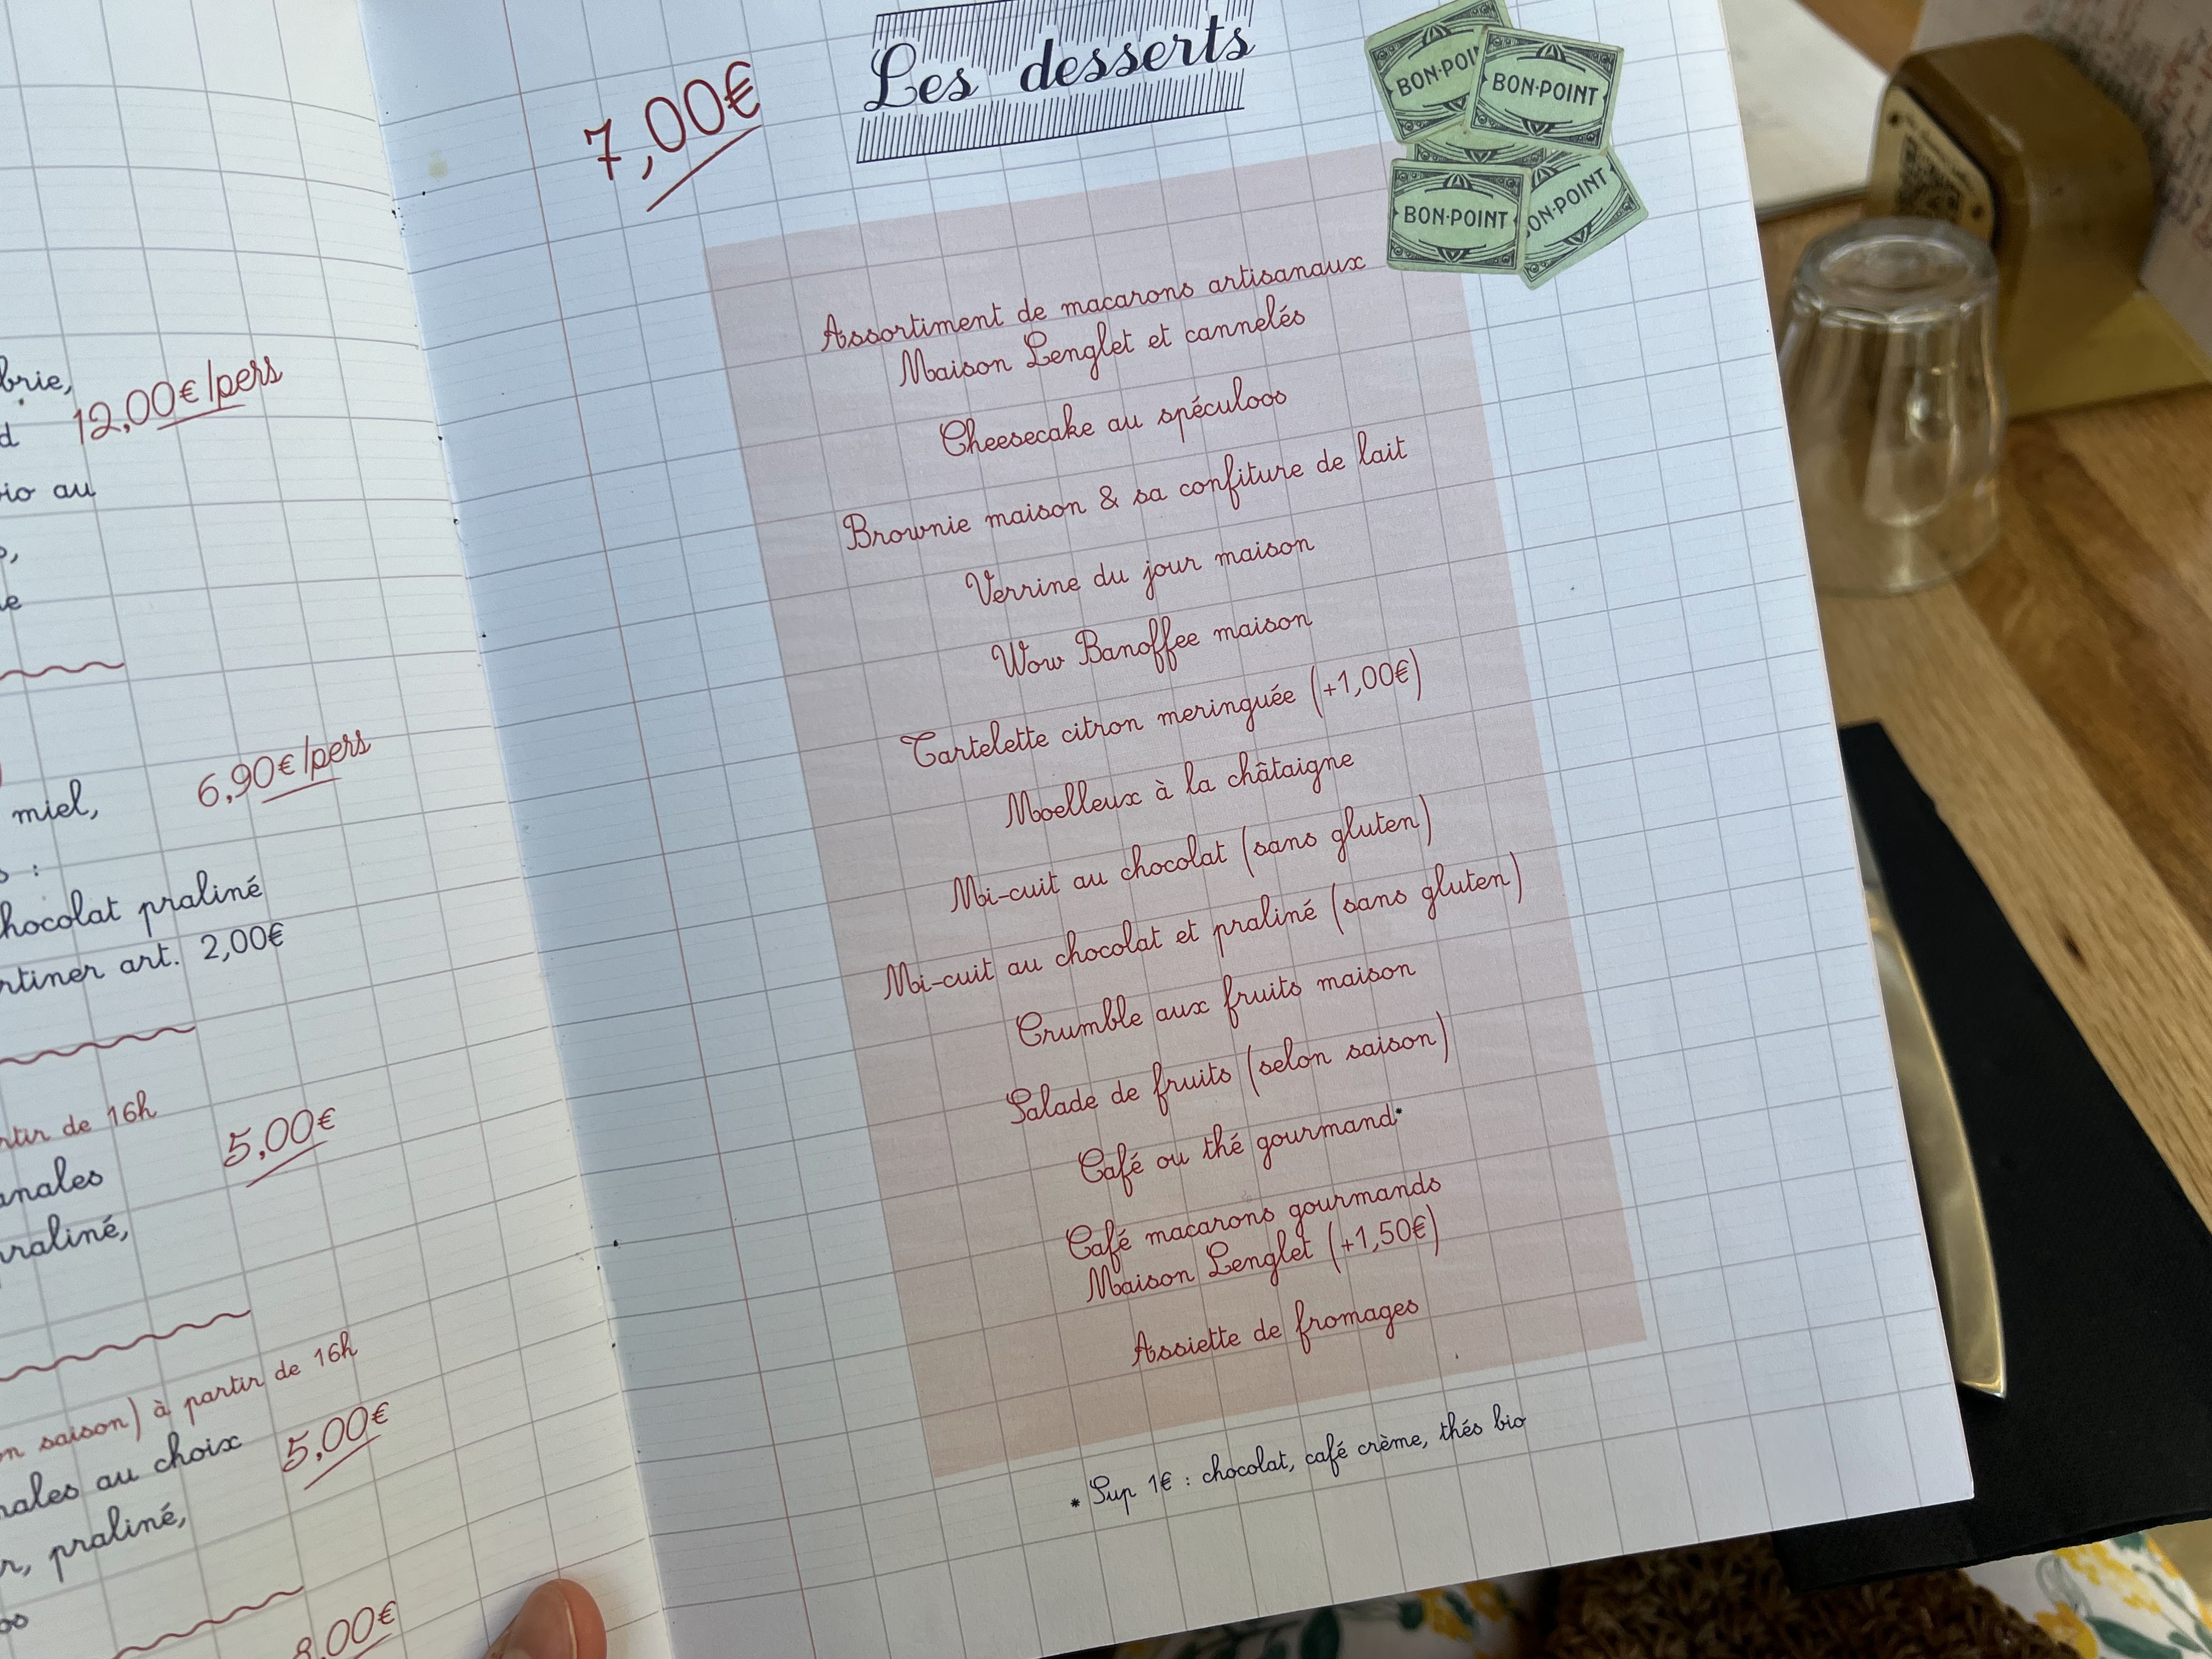 brie,
12,00€/pers
io au
miel,
6,90€/pers
chocolat praliné
art. 2,00€
de 16h
5,00€
praliné,
saison) à partir de 16h
5,00€
au choix
praliné,
8,00€
7,00€
Les desserts
BON-POINT
BON-POINT
BON-POINT
Assortiment de macarons artisanaux
Maison Lenglet et cannelés
Cheesecake au spéculoos
Brownie maison & sa confiture de lait
Verrine du jour maison
Wow Banoffee maison
Tartelette citron meringuée (+1,00€)
Moelleux à la châtaigne
Mi-cuit au chocolat (sans gluten)
Mi-cuit au chocolat et praliné (sans gluten)
Crumble aux fruits maison
Salade de fruits (selon saison)
Café ou thé gourmand*
Café macarons gourmands
Maison Lenglet (+1,50€)
Assiette de fromages
* Sup 1€ : chocolat, café crème, thés bio